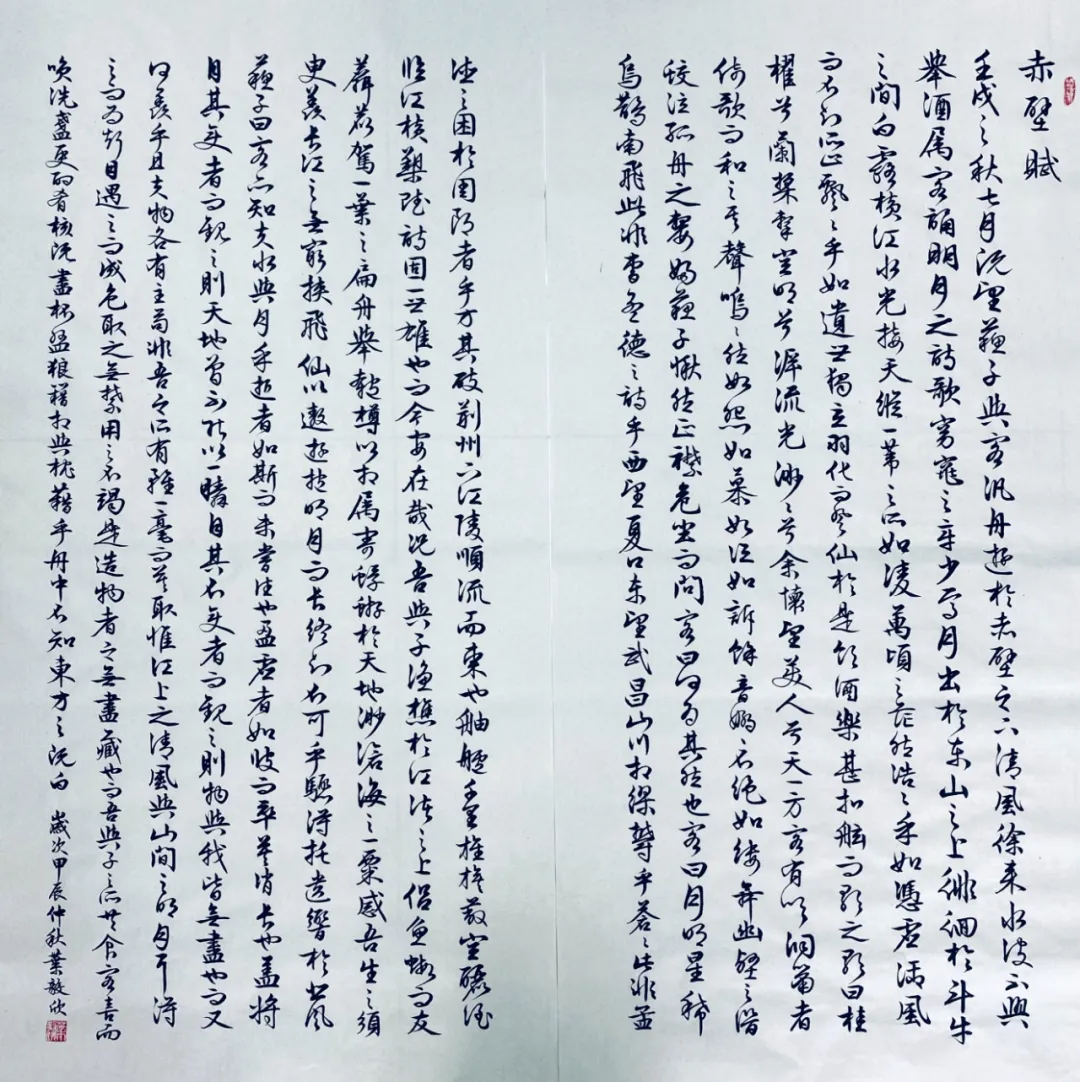 赤壁賦
壬戌之秋七月既望蘇子與客汎舟遊於赤壁之下清風徐來水波不興
舉酒属客誦明月之詩歌窈窕之章少焉月出於东山之上徘徊於斗牛
之間白露橫江水光接天縱一葦之所如凌萬頃之茫然浩々乎如憑虛御風
而不知所止飄々乎如遺世獨立羽化而登仙於是飲酒樂甚扣舷而歌之歌曰桂
櫂兮蘭槳擊空明兮泝流光渺々兮余懷望美人兮天一方客有吹洞簫者
倚歌而和之其聲嗚々然如怨如慕如泣如訴餘音嫋々不絕如縷舞幽壑之潛
蛟泣孤舟之嫠婦蘇子愀然正襟危坐而問客曰何為其然也客曰月明星稀
烏鵲南飛此非曹孟德之詩乎西望夏口东望武昌山川相繆鬱乎蒼々此非孟
德之困於周郎者乎方其破荊州下江陵順流而東也舳艫千里旌旗蔽空釃酒
臨江橫槊賦詩固一世雄也而今安在哉況吾與子漁樵於江渚之上侶魚蝦而友
麋鹿駕一葉之扁舟舉匏樽以相属寄蜉蝣於天地渺滄海之一粟感吾生之須
臾羨長江之無窮挾飛仙以遨遊抱明月而長終知不可乎驟得托遺響於悲風
蘇子曰客亦知夫水與月乎逝者如斯而未嘗往也盈虛者如彼而卒莫消長也蓋將
自其變者而觀之則天地曾不能以一瞬自其不變者而觀之則物與我皆無盡也而又
何羨乎且夫物各有主苟非吾之所有雖一毫而莫取惟江上之清風與山間之明月耳得
之而為聲目遇之而成色取之無禁用之不竭是造物者之無盡藏也而吾與子之所共食客喜而
笑洗盞更酌肴核既盡杯盤狼藉相與枕藉乎舟中不知東方之既白 歲次甲辰仲秋葉毅欣